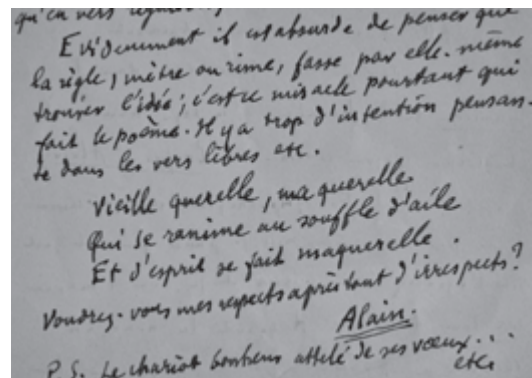 qu'en vers
Evidemment il est absurde de penser que
la règle, mètre ou rime, fasse par elle-même
trouver l'idée; c'est ce miracle pourtant qui
fait le poème. Il y a trop d'intention pensan-
te dans les vers libres etc.
Vieille querelle, ma querelle
Qui se ranime au souffle d'aile
Et d'esprit se fait maquerelle.
Voudrez-vous mes respects après tant d'irrespects?
Alain.
P.S. Le chariot bonheur attelé de ses vœux...
etc.